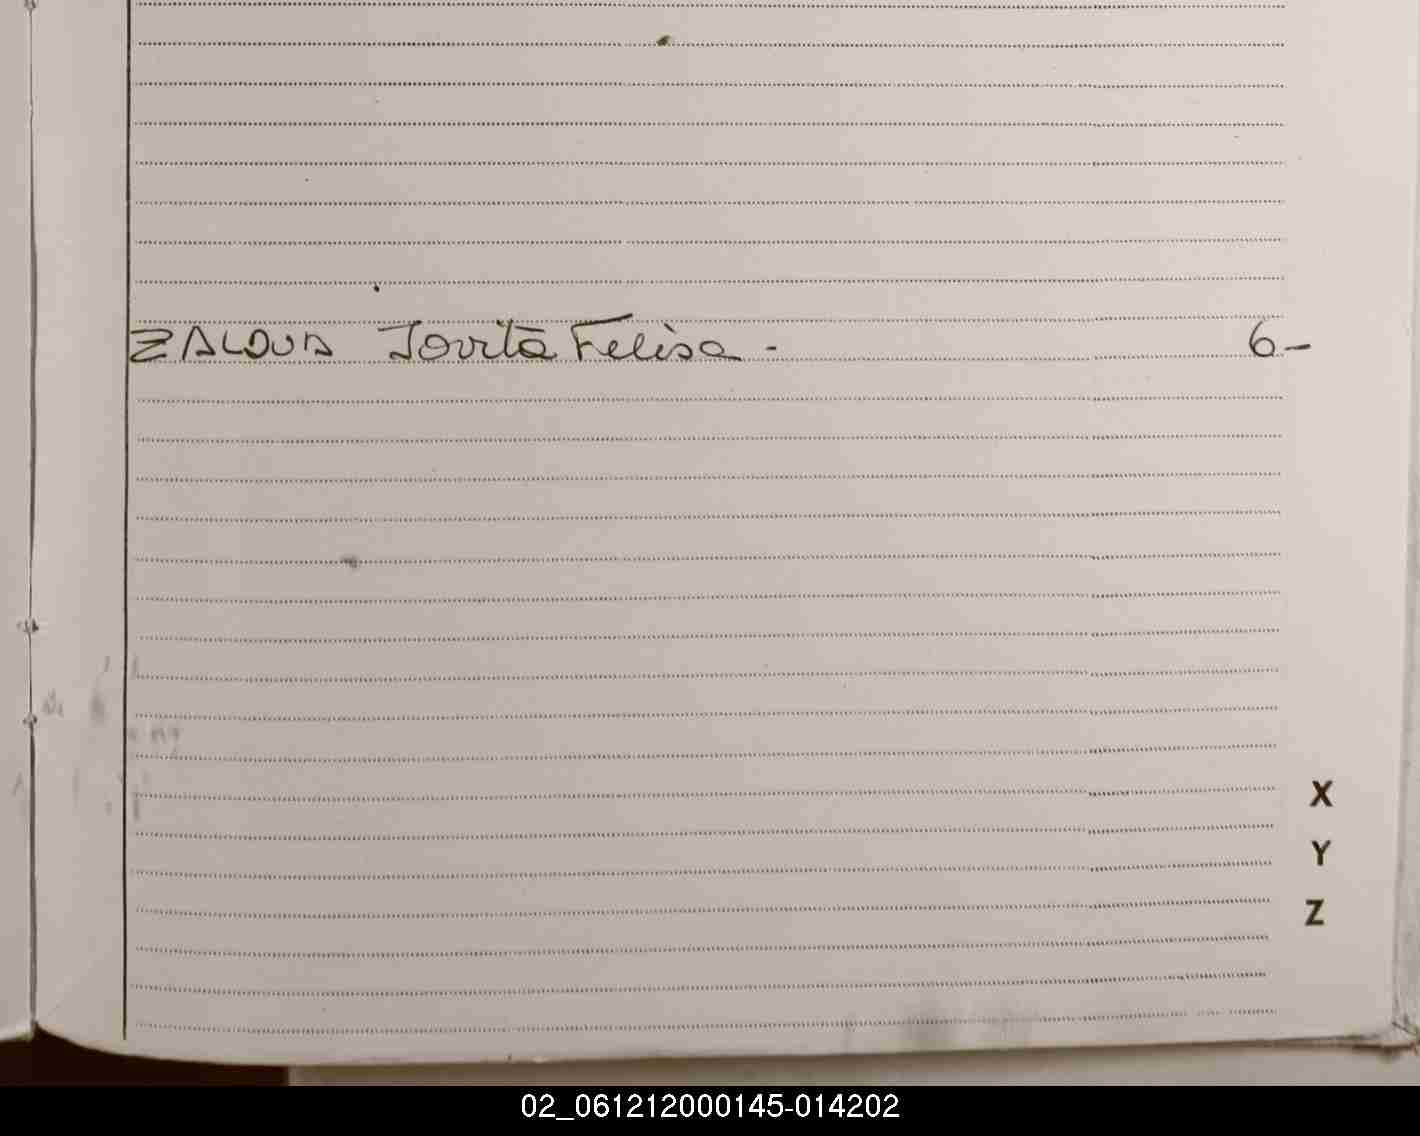 ZALDUA Jovita Felisa - 6-
X
Y
Z
02_061212000145-014202